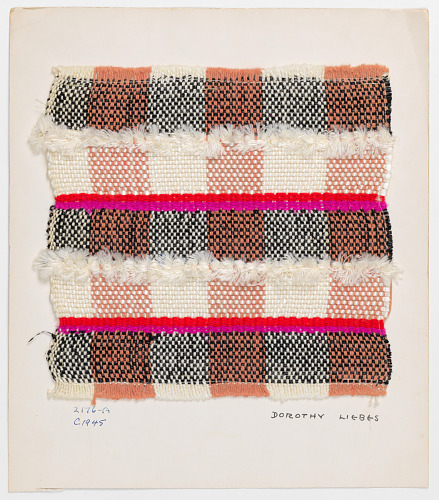 2176-A
C1945
DOROTHY LIEBES